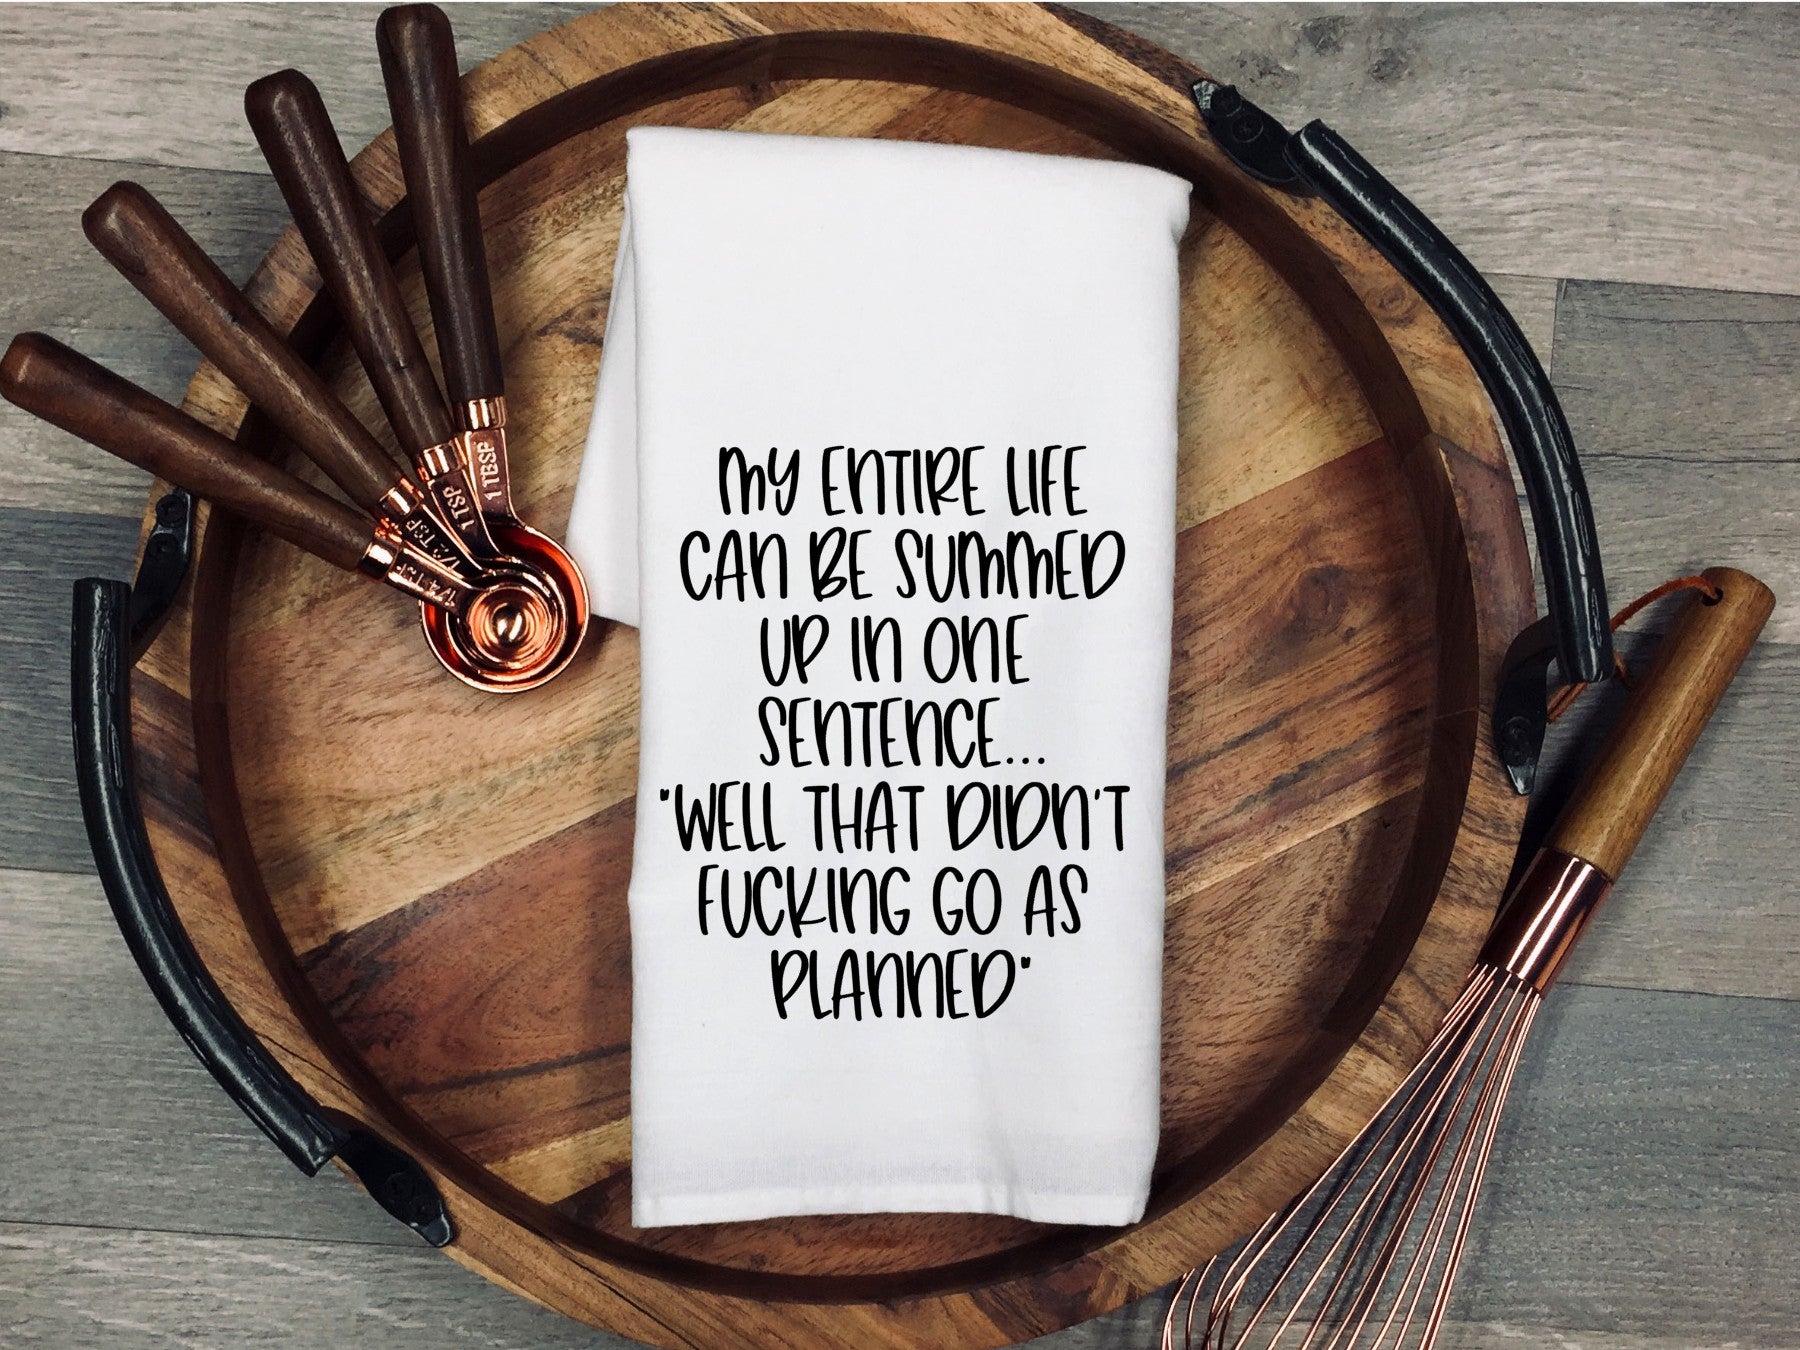 MY ENTIRE LIFE
CAN BE SUMMED
UP IN ONE
SENTENCE...
"WELL THAT DIDN'T
FUCKING GO AS
PLANNED"
1 TBSP
1 TSP
1/2 TSP
1/4 TSP